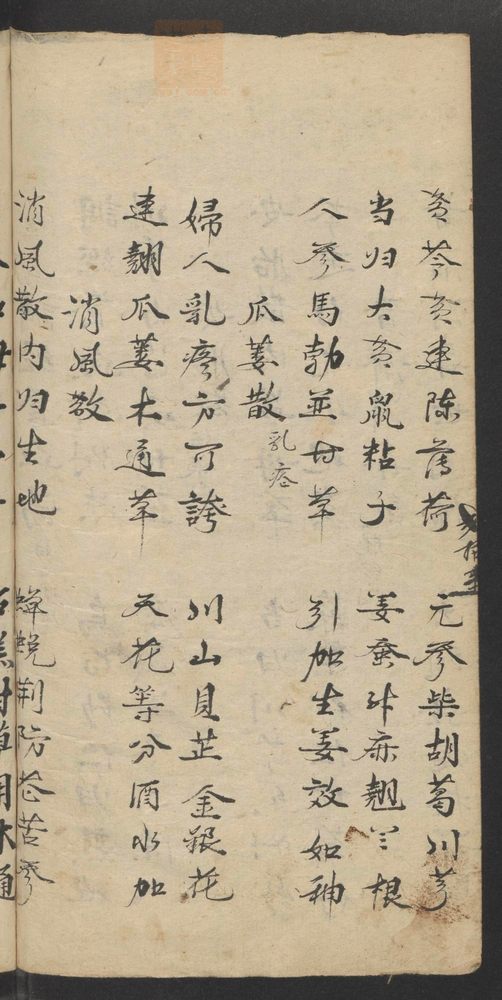 芩黄連陳薄荷 元参柴胡葛川芎
当归大黄鼠粘子 姜蚕升麻翘兰根
人参馬勃並甘草 引加生姜效如神
瓜蒌散 乳疮
婦人乳疼方可誇 川山貝芷金銀花
連翹瓜蒌木通草 天花等分酒水加
消風散
消風散内归生地 蝉蜕荆防苍苦参